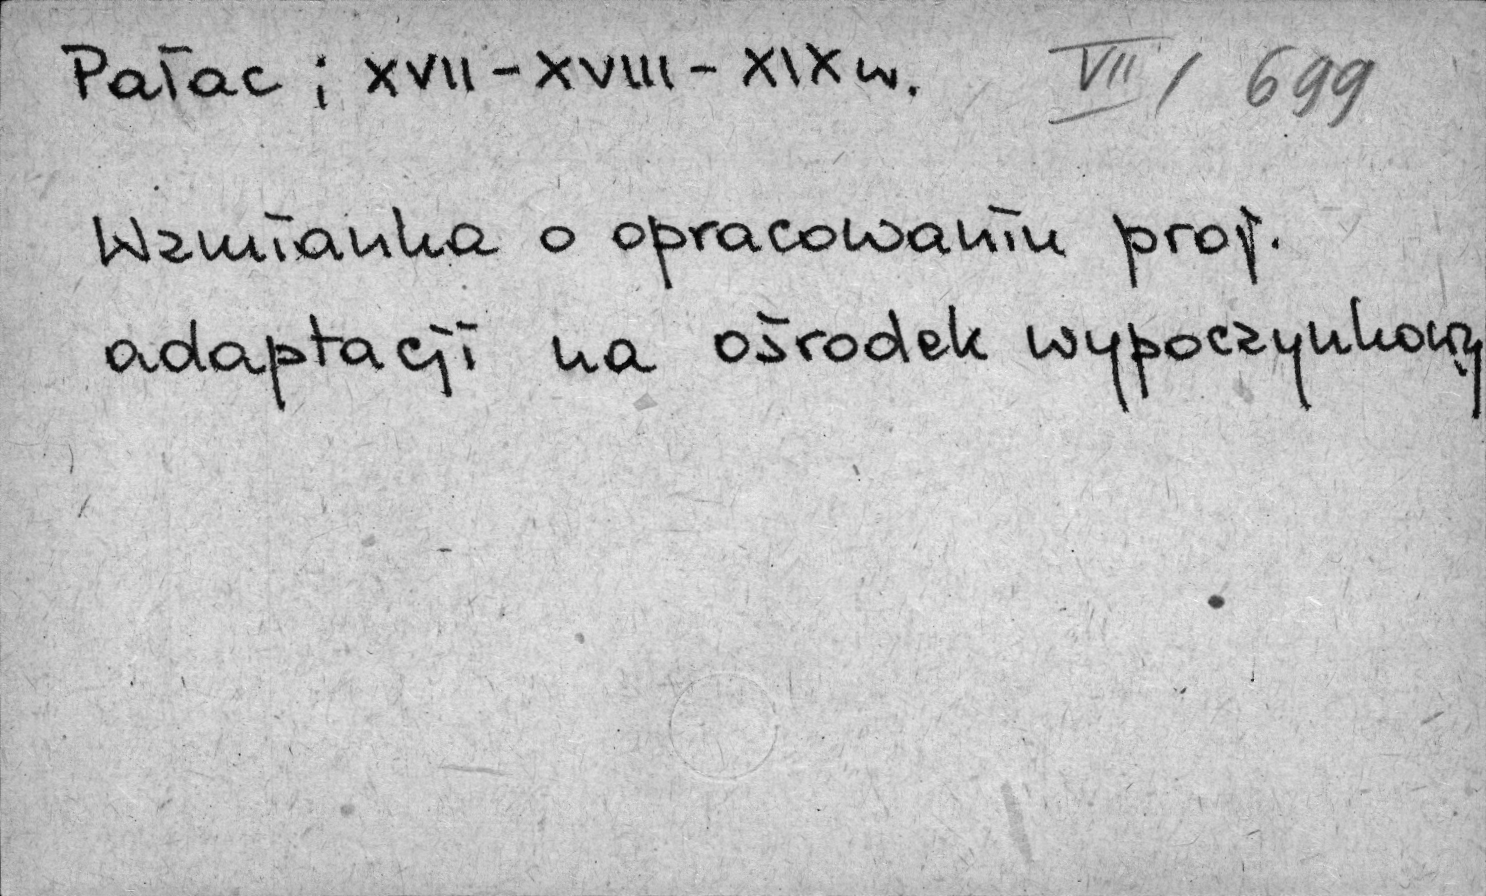 Pałac ; XVII - XVIII - XIX w. VII / 699
Wzmianka o opracowaniu proj.
adaptacji na ośrodek wypoczynkowy